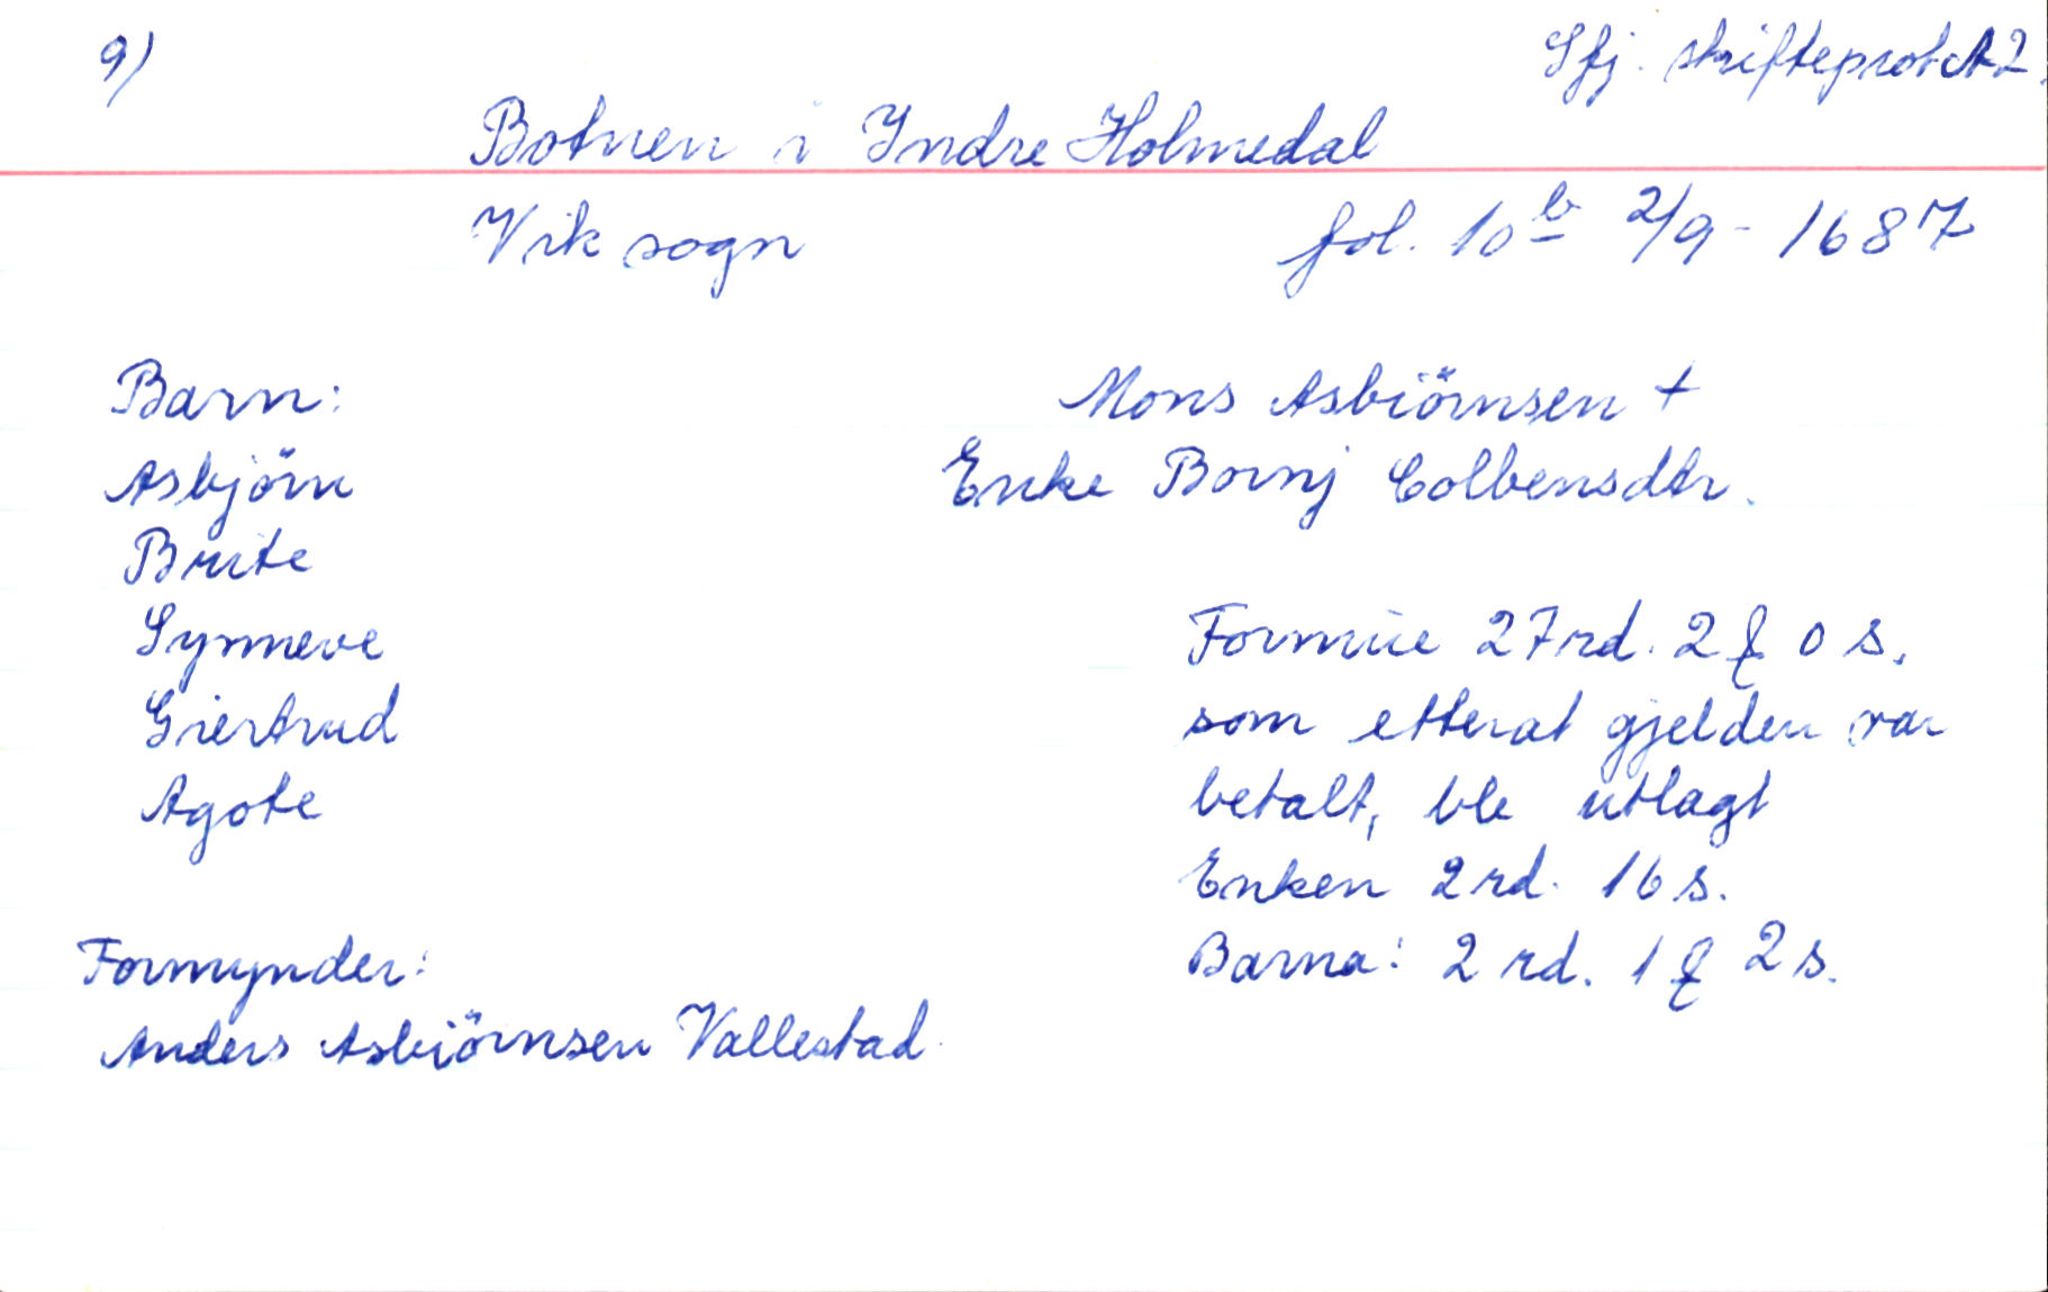 9)
Sfj. skifteprot A2.
Botnen i Yndre Holmedal
Vik sogn
fol. 10 b 2/9 - 1687
Barn:
Mons Asbiörnsen +
Asbjörn
Enke Bornj Colbensdtr.
Brite
Synneve
Formue 27 rd. 2 ꝗ 0 s.
Giertrud
som etterat gjelden var
Agote
betalt, ble utlagt
Enken 2 rd. 16 s.
Formynder:
Barna: 2 rd. 1 ꝗ 2 s.
Anders Asbiörnsen Vallestad